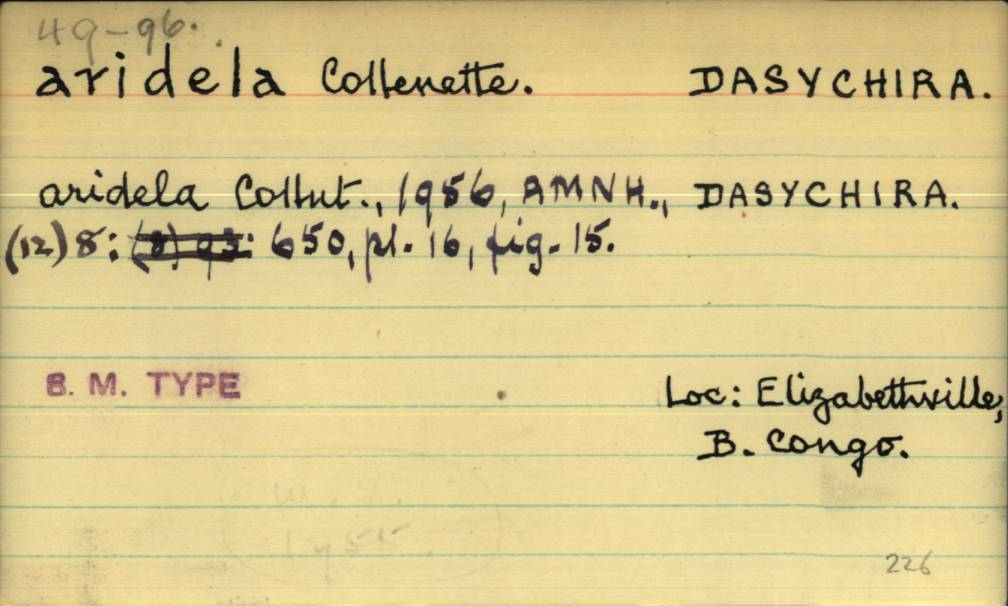 49-96.
aridela Collenette. DASYCHIRA.
aridela Collnt., 1956, AMNH., DASYCHIRA.
(12) 8: (8) 93: 650, pl. 16, fig. 15.
B. M. TYPE
Loc: Elizabethville,
B. Congo.
1955
226